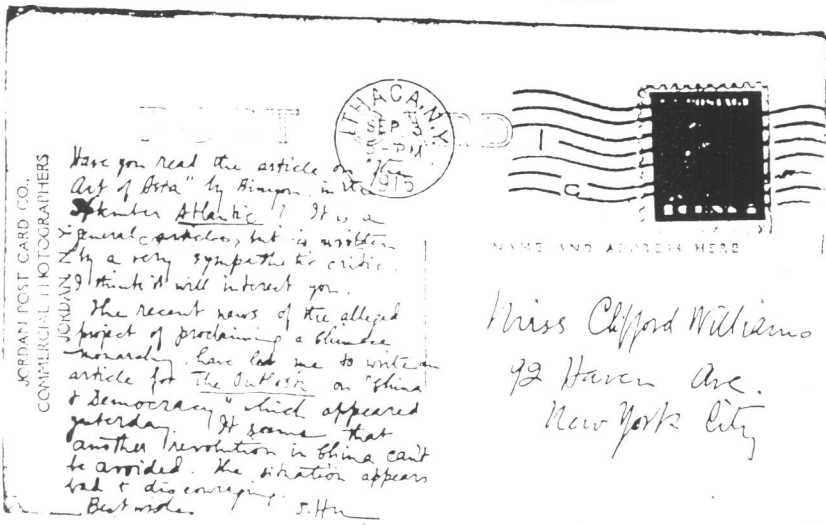 JORDAN POST CARD CO.,
COMMERCIAL PHOTOGRAPHERS
JORDAN, N.Y.
POST CARD
ITHACA, N.Y.
SEP
-PM
1915
NAME AND ADDRESS HERE
Have you read the article on "The
Art of Asia" by Binyon in the
September Atlantic? It is a
general article, but is written
by a very sympathetic critic.
I think it will interest you.
The recent news of the alleged
project of proclaiming a Chinese
monarchy have led me to write an
article for The Outlook on "China
& Democracy" which appeared
yesterday. It seems that
another revolution in China can't
be avoided. The situation appears
bad & discouraging.
Best wishes. S. Hu
Miss Clifford Williams
92 Haven Ave.
New York City